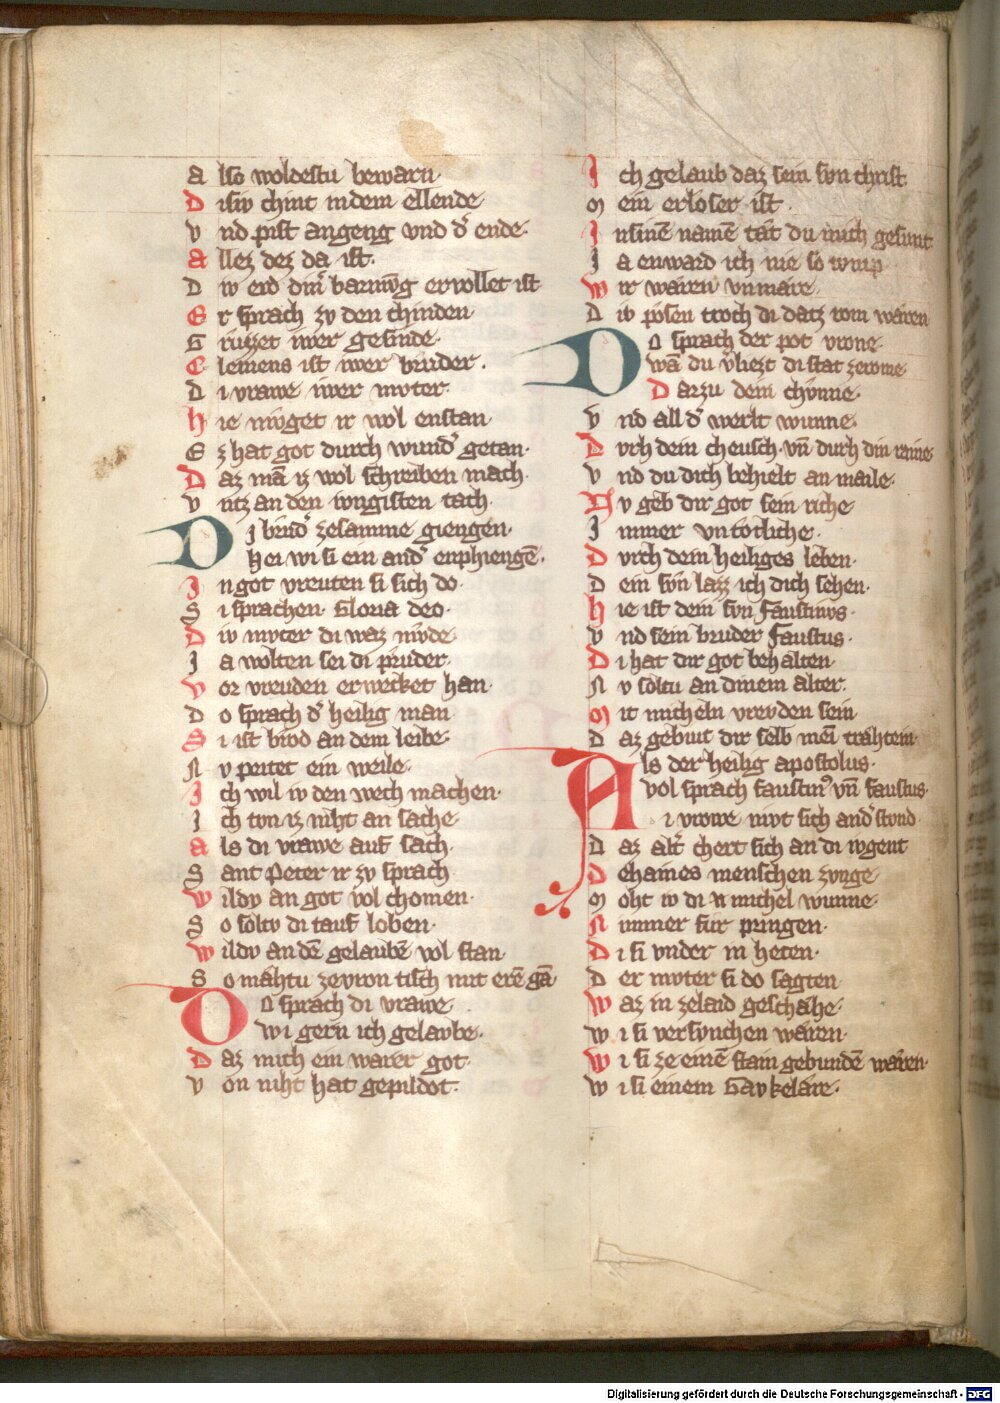 A lso woldestu bewarn·
D isiv chint in dem ellende
V nd pist angeng vnd d͛ ende·
A llez dez da ist·
D iv erd din͛ barmv̄g ervollet ist
E r sprach zv den chinden
G ruzzet iwer gesinde·
C lemens ist iwer bruder·
D i vrawe iwer mvter·
H ie mvget ir wol enstan
E z hat got durch wund͛ getan·
D az mā iz wol schreiben mach·
V ntz an den ivngisten tach·
D i brud͛ zesamme giengen·
Hei wi si ein and͛ enphiengē·
I n got vreuten si sich do·
S i sprachen· Gloria deo·
D iv mvter di waz mvde·
I a wolten sei di pruder·
V or vreuden erwecket han·
D o sprach d͛ heilig man
S i ist blod an dem leibe·
N v peitet ein weile·
I ch wil iv den wech machen·
I ch ton iz niht an sache·
A ls di vrawe auf sach·
S ant Peter ir zv sprach
W ildv an got vol chomen·
S o soltv di tauf loben·
W ildv an dē gelaubē vol stan·
S o mahtu ze vron tisch mit erē gā
D o sprach di vrawe·
Wi gern ich gelavbe·
D az mich ein warer got·
V on niht hat gepildot·
I ch gelaub daz sein svn christ
M ein erloser ist·
I n sinē namē tat du mich gesunt
I a enward ich nie so
W ir waren vnmare·
D iv posen troch di datz rom waren
D o sprach der pot vrone·
Wā du v͛liezt di stat ze rome
D arzu dein chvnne·
V nd all d͛ werlt wunne·
D vrch dein cheusch· vn̄ durch din raine
V nd du dich behielt an maile·
N v geb dir got sein riche
I mmer vntotliche·
D vrch dein heiliges leben·
D ein svn lazz ich dich sehen·
H ie ist dein svn Faustinvs·
V nd sein bruder Faustus·
D i hat dir got behalten·
N v soltu an dinem alter·
M it micheln vrevden sein
D az gebiut dir selb mei trahtein·
A ls der heilig apostolus·
Vol sprach faustin͛ vn̄ faustus·
D i vrowe nivt sich and͛ stvnd·
D az alt͛ chert sich an di ivgent
D ehaines menschen zvnge·
M oht iv di michel wunne·
N immer fur pringen·
D i si vnder in heten·
D er mvter si do sagten
W az in ze land geschahe·
W i si versvnchen waren·
W i si ze einē stam gebundē waren·
W i si einem Gavkelare·
Digitalisierung gefördert durch die Deutsche Forschungsgemeinschaft - DFG